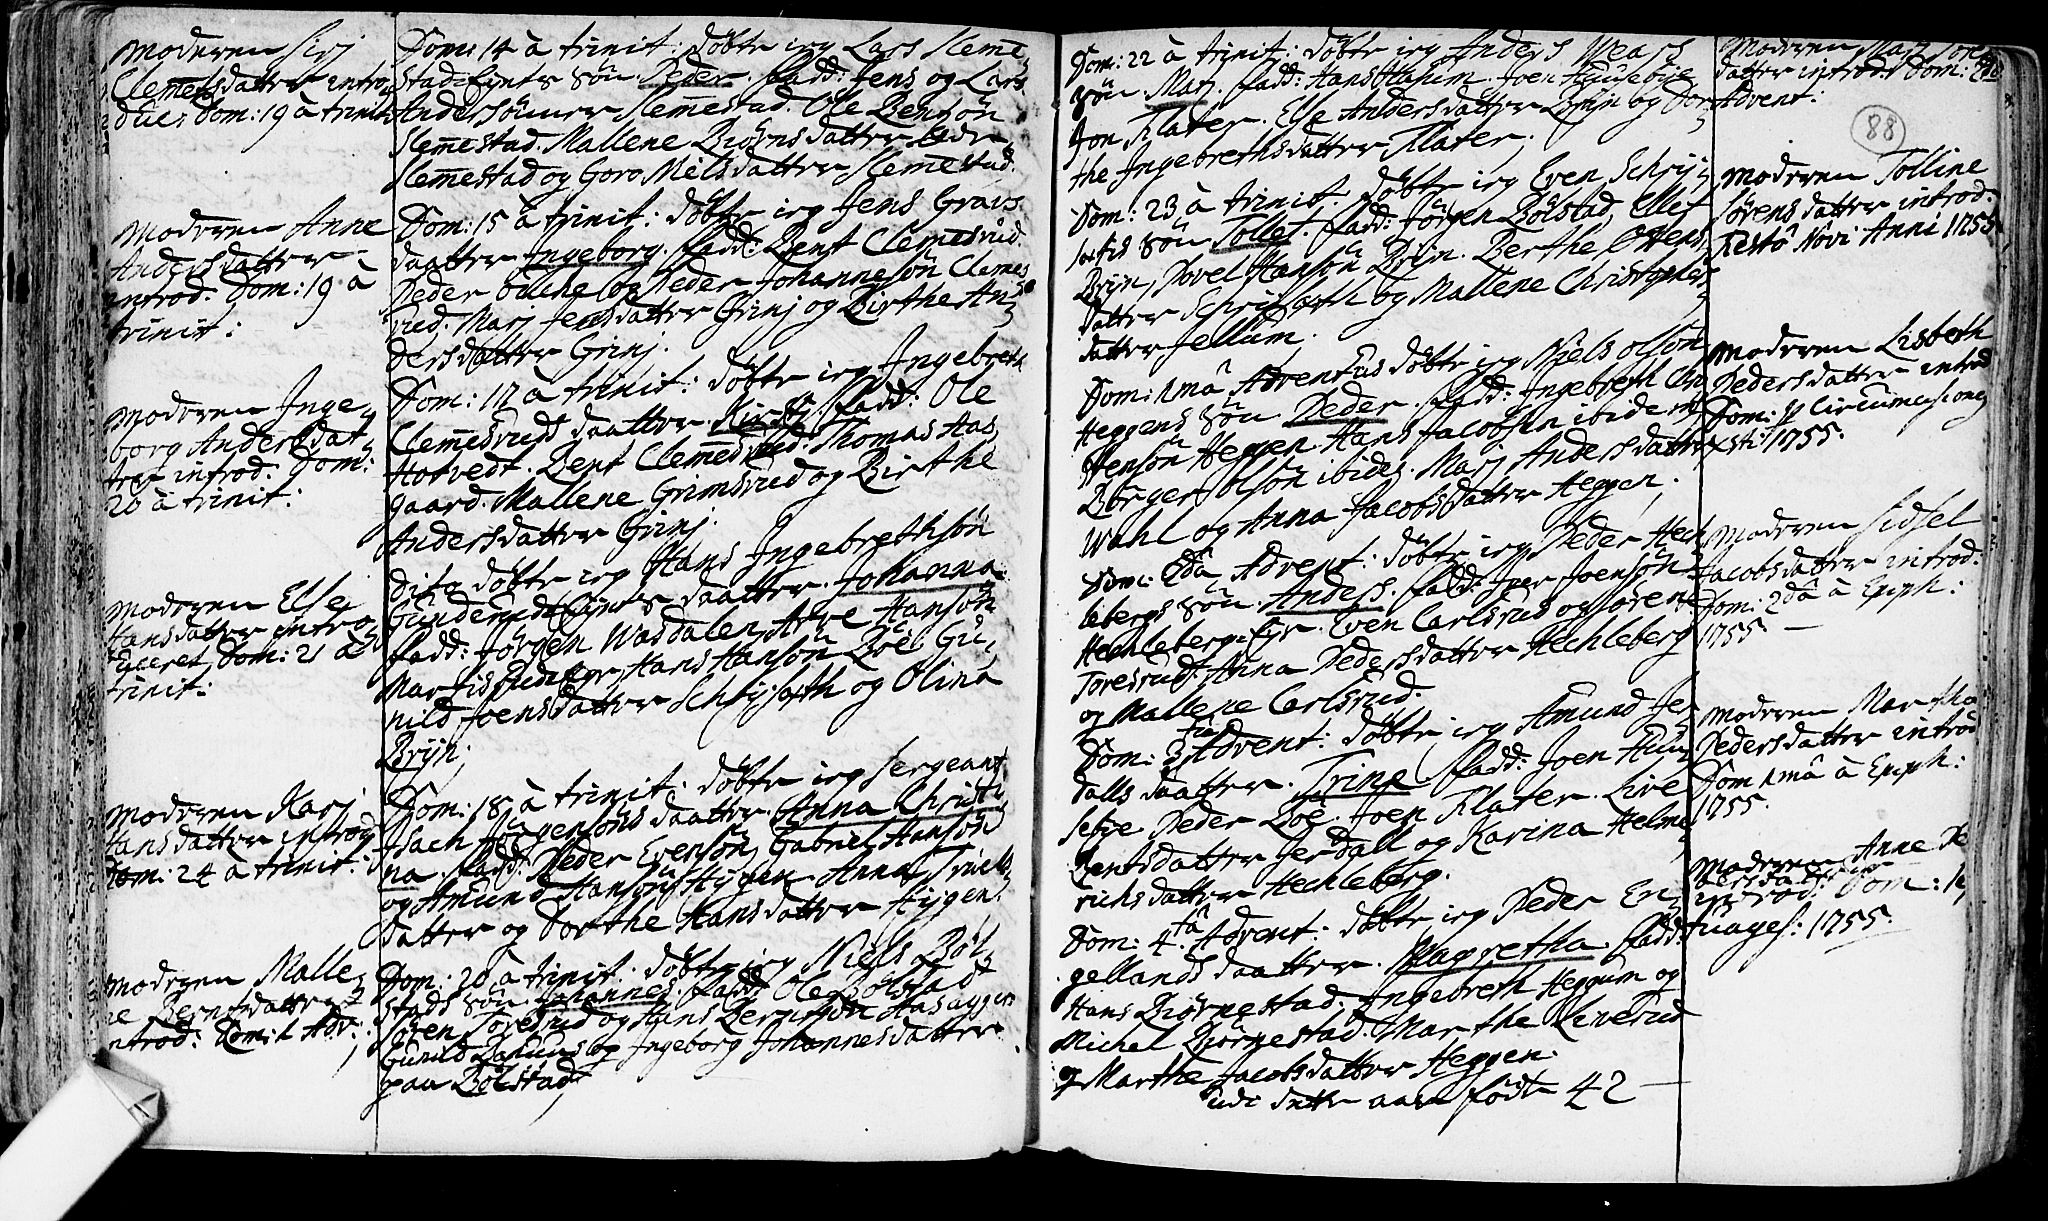 Moderen Sirj
Clemetsdatter intro-
due: Dom: 19 à trinit:
Moderen Anne
Andersdatter
introd. Dom: 19 à
trinit:
Moderen Inge-
borg Andersdat-
ter introd: Dom:
20 à trinit:
Moderen Else
Hansdatter intro-
duceret Dom: 21 à
trinit:
Moderen Karj
Hansdatter introd
Dom: 24 à trinit:
Moderen Malle-
ne Berntsdatter
introd: Dom: 1 Adv:
Dom: 14 à trinit: døbte ieg Lars Sleme-
stad Eyers søn Peder. fadd: Jens og Lars
Anderssönner Slemestad. Ole Bensön
Slemestad. Mallene Biörnsdatter
Slemestad og Goro Nielsdatter Slemestad.
Dom: 15 à trinit: døbte ieg Jens Gravs
daatter Ingeborg. fadd: Bent Clemesrud.
Peder og Peder Johannesön Clemes-
rud. Marj Jensdatter Grinj og Birthe An-
dersdatter Grinj.
Dom: 17 à trinit: døbte ieg Ingebreth
Clemesruds daatter Kirstj. fadd: Ole
Hotvedt. Bent Clemesrud. Thomas Has-
gaard. Mallene Grimsrud og Birthe
Andersdatter Grinj.
dito døbte ieg Hans Ingebrethsön
Gunderud Eyers daatter Johanna.
fadd: Jörgen Wasdalen, Are Hansön
Martisrud Eyer, Hans Hansön Böe. Gu-
nild Joensdatter Schrisæth og Olina
Brijn;
Dom: 18 à trinit: døbte ieg Sergeant
Isach Jörgensöns daatter Anna Christi-
na. fadd: Peder Evensön, Gabriel Hansön
og Amund Hansön Hygen. Anna Truels-
datter og Dorthe Hansdatter Hygen.
Dom: 20 à trinit: døbte ieg Niels Böl-
stads søn Johannes. fadd: Ole Bölstad
Sören Toresrud og Hans Berntsön Hasaggen
Gunild og Ingeborg Johannesdatter
paa Bölstad;
Dom: 22 à trinit: døbte ieg Anders Wears
søn Mar. fadd: Hans Hajum. Joen Huusebye
Jon Klater. Else Andersdatter Brijn og Dor-
the Ingebrethsdatter Klater;
Dom: 23 à trinit: døbte ieg Even Schrij-
sætes søn Tollef. fadd: Jörgen Bölstad, Ellef
Brijn, Povel Hansön Brijn. Berthe Ottens-
datter Schrisæth og Mallene Christophers-
datter Jellum.
Dom: 1mâ Adventus døbte ieg Niels Olsön
Heggens søn Peder. fadd: Ingebreth Chri-
stensön Heggen Hans Jacobsen ibidem
Börger Olsön ibidem. Marj Andersdatter
Wahl og Anna Jacobsdatter Heggen;
Dom: 2dâ Advent: døbte ieg Peder Hech-
lebergs søn Anders. fadd: Iver Joensön
Hechleberg Eyer. Even Carlsrud og Sören
Toresrud. Anna Pedersdatter Hechleberg
og Mallene Carlsrud.
Dom: 3tia Advent: døbte ieg Amund Jer-
dalls daatter Trine. fadd: Joen Huu-
sebye Peder Böe. Joen Klater. Live
Bentsdatter Jerdall og Karina Helme-
richsdatter Hechleberg.
Dom: 4tâ Advent: døbte ieg Peder En-
gellands daatter Magretha. fadd:
Hans Biörnestad. Ingebreth Heggum og
Michel Biörnestad. Marthe Leverud
og Marthe Jacobsdatter Heggen.
udi dette aar føde 42
Moderen Marj Tores-
datter introd: Dom:
Advent:
88
Moderen Tolline
Sörensdatter introd.
Festo Novi Anni 1755
Moderen Lisbeth
Pedersdatter introd
Dom: p Circumcisione
xsti 1755.
Moderen Sidsel
Jacobsdatter introd.
Dom: 2dâ à Epiph:
1755
Moderen Martha
Pedersdatter introd
Dom 1mâ à Epiph:
1755.
Moderen Anne Pe-
dersdatter
introd: Dom:
tuages: 1755.